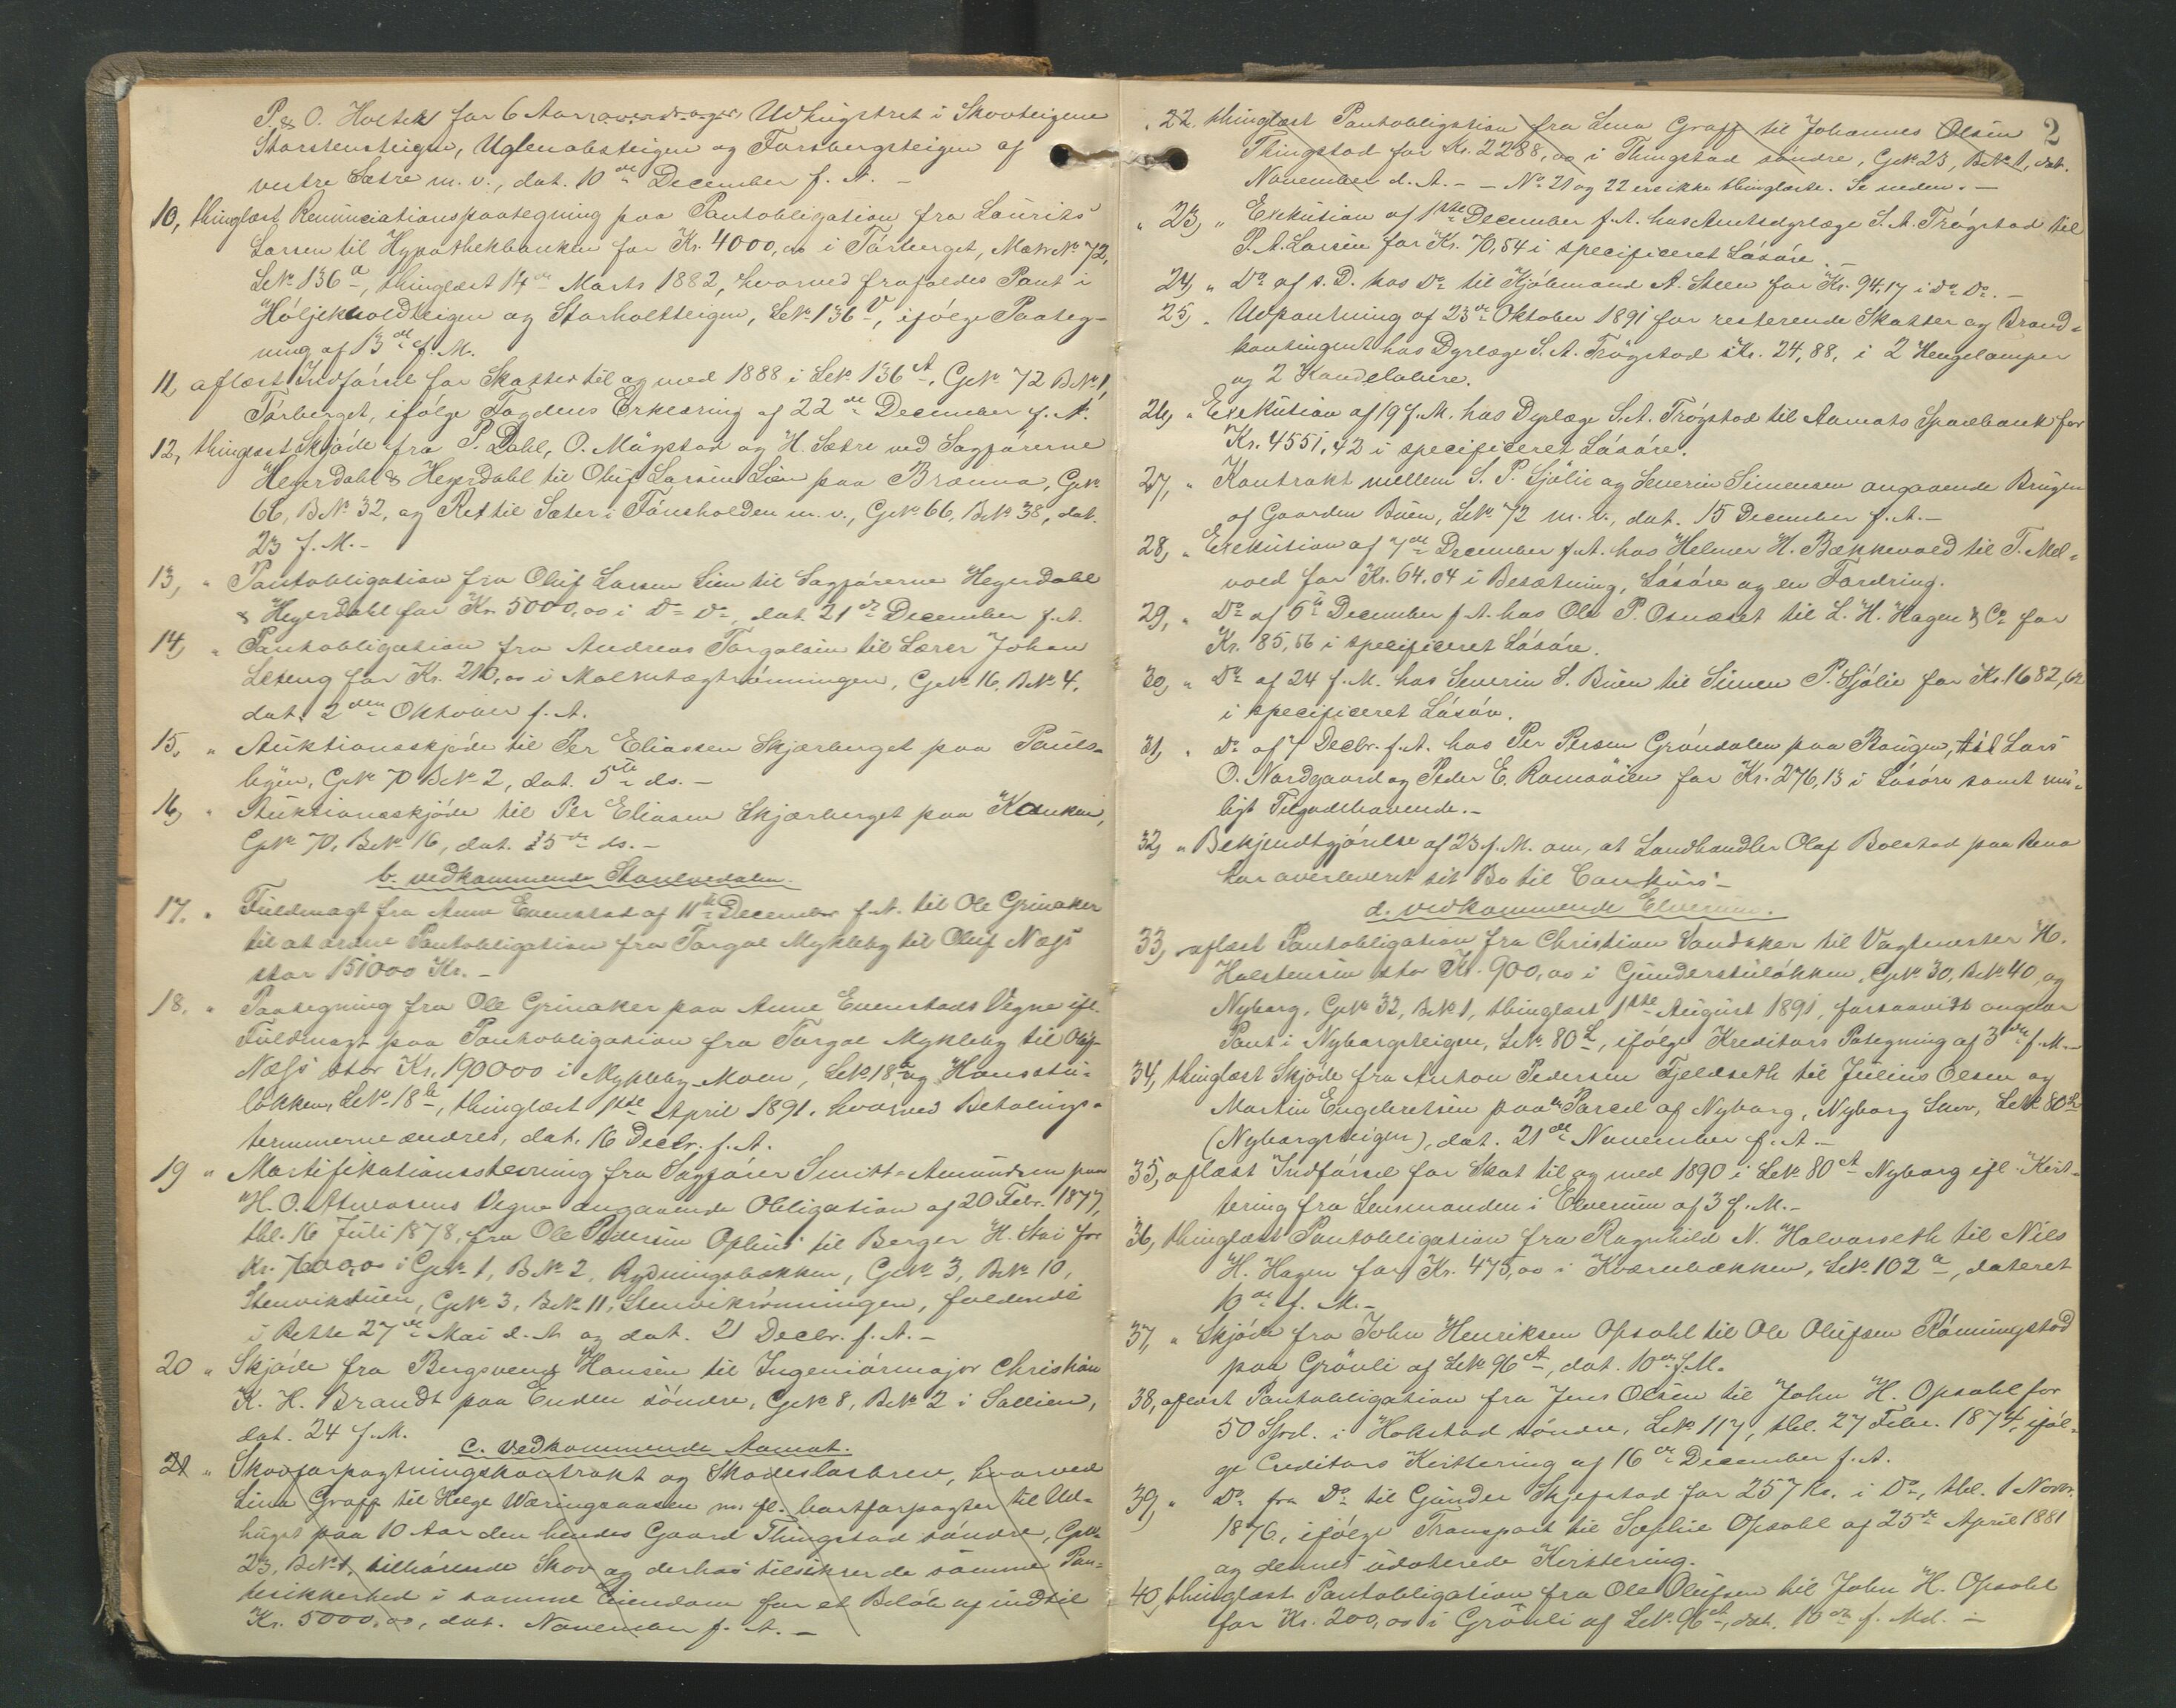 P. & O. Holtet for 6 Aar overdrager Udhugstret i Skovteigene
Storstensteigen, Uglenabsteigen og Forsbergsteigen af
vestre Sætre m. v., dat. 10de December f. A. –
10, thinglæst Renunciationspaategning paa Pantobligation fra Laurits
Larsen til Hypothekbanken for Kr. 4000,00 i Tórberget, Matr№ 72,
L№ 136a, thinglæst 14de Marts 1882, hvorved frafaldes Pant i
og Storholtteigen, L№ 136 , ifólge Paateg-
ning af 13de f. M.
11, aflæst Indfórsel for Skatter til og med 1888 i L№ 136A, G№ 72 B№ 1,
Tórberget, ifólge Fogdens Erklæring af 22de December f. A.
12, thinglæst Skjóde fra P. Dahl, O. Mŭgstad og H. Sætre ved Sagfórerne
Heyerdahl & Heyerdahl til Oluf Larsen Lien paa Brænna, G№
66, B№ 32, og Ret til Sæter i Fónsholden m. v., G№ 66, B№ 38, dat.
23 f. M. –
13, " Pantobligation fra Oluf Larsen Lien til Sagfórerne Heyerdahl
& Heyerdahl for Kr. 5000,00 i Do Do, dat. 21de December f. A.
14, " Pantobligation fra Andreas Torgalsen til Lærer Johan
for Kr. 210,00 i , G№ 16, B№ 4,
dat. 2den Oktober f. A.
15, " Auktionsskjóde til Per Eliassen Skjærberget paa Pauls-
bÿen, G№ 70 B№ 2, dat. 5te ds. –
16, " Auktionsskjóde til Per Eliassen Skjærberget paa Kanken,
G№ 70, B№ 16, dat. 5te ds. –
b. vedkommende Storelvedalen.
17. " Fuldmagt fra Anne Evenstad af 11te December f. A. til Ole Grinaker
til at ordne Pantobligation fra Torgal Mykleby til Oluf Næss
stor 151000 Kr. –
18. " Paategning fra Ole Grinaker paa Anne Evenstads Vegne ifl.
Fuldmagt paa Pantobligation fra Torgal Mykleby til Oluf
Næss stor Kr. 190000 i Mykleby-Moen, L№ 18a, og Hansstu-
lókken, L№ 18b, thinglæst 1ste April 1891, hvorved Betalings-
terminerne ændres, dat. 16 Decbr. f. A.
19 " Mortifikationsstevning fra Sagfórer Smitt-Amundsen paa
H. O. Vegne angaaende Obligation af 20 Febr. 1877,
thl. 16 Juli 1878, fra Ole Pedersen Ophus til Berger H. Stai for
Kr. 7600,00 i G№ 1, B№ 2, Rydningsbækken, G№ 3, B№ 10,
Stenvikstuen, G№ 3, B№ 11, Stenvikrónningen, faldende
i Rette 27de Mai d. A. og dat. 21 Decbr. f. A. –
20 " Skjóde fra Bergsvend Hansen til Ingeniórmajor Christian
K. H. Brandt paa Enden sóndre, G№ 8, B№ 2 i Sollien,
dat. 24 f. M.
c. vedkommende Aamot.
21 " Skovforpagtningskontrakt og Skadeslosbrev, hvorved
Lina Graff til Helge Wæringsaasen m. fl. bortforpagter til Ud-
hugst paa 10 Aar den hendes Gaard Thingstad sóndre, G№
23, B№ 1, tilhórende Skov og derhos tilsikrer de samme Pan-
tesikkerhed i samme Eiendom for et Belób af indtil
Kr. 5000,00, dat. November f. A. –
2
22. thinglæst Pantobligation fra Lina Graff til Johannes Olsen
Thingstad for Kr. 2288,00 i Thingstad sóndre, G№ 23, B№ 1, dat.
November d. A. – – No 21 og 22 ere ikke thinglæste. Se neden. –
" 23, " Exekution af 1ste December f. A. hos Amtsdyrlæge S. A. Trógstad til
P. A. Larsen for Kr. 70,54 i specificeret Lósóre. –
24, " Do af s. D. hos Do til Kjóbmand A. Steen for Kr. 94,17 i Do Do. –
25, " Udpantning af 23de Oktober 1891 for resterende Skatter og Brand-
kontingent hos Dyrlæge S. A. Trógstad Kr. 24,88, i 2 Hengelamper
og 2 Kandelabere.
26, " Exekution af 19 f. M. hos Dyrlæge S. A. Trógstad til Aamots Sparebank for
Kr. 4551,42 i specificeret Lósóre.
27, " Kontrakt mellem S. P. Sjólie og Severin Simensen angaaende Brugen
af Gaarden Buen, L№ 72 m. v., dat. 15 December f. A. –
28, " Exekution af 7de December f. A. hos Helmer H. Bækkevold til T. Mel-
vold for Kr. 64,04 i Besætning, Lósóre og en Fordring.
29, " Do af 5te December f. A. hos Ole P. Osnæset til L. H. Hagen & Co for
Kr. 85,56 i specificeret Lósóre.
30, " Do af 24 f. M. hos Severin S. Buen til Simen P. Sjólie for Kr. 1682,62
i specificeret Lósóre.
31, " Do af 4 Decbr. f. A. hos Per Persen Gróndalen paa Haugen, til Lars
O. Nordgaard og Peder E. Ramsóien for Kr. 276,13 i Lósóre samt mu-
ligt Tilgodehavende. –
32, " Bekjendtgjórelse af 23 f. M. om, at Landhandler Olaf Bolstad paa Rena
har overleveret sit Bo til Conkurs –
d. vedkommende Elverum.
33, aflæst Pantobligation fra Christian Sandaker til Vagtmester H.
Halstensen stor Kr. 900,00 i Gunderstulókken, G№ 30, B№ 40, og
Nyborg, G№ 32, B№ 1, thinglæst 1ste August 1891, forsaavidt angaar
Pant i Nyborgteigen, L№ 80b, ifólge Kreditors Pategning af 3de f. M. –
34, thinglæst Skjóde fra Anton Pedersen Fjeldseth til Julius Olsen og
Martin Engebretsen paa Parcel af Nyborg, Nyborg Skov, L№ 80b
(Nyborgteigen), dat. 21de November f. A. –
35, aflæst Indfórsel for Skat til og med 1890 i L№ 80A Nyborg ifl. Kvit-
tering fra Lensmanden i Elverum af 3 f. M. –
36, thinglæst Pantobligation fra Ragnhild N. Halvorseth til Nils
H. Hagen for Kr. 475,00 i Kværnbækken, L№ 102a, dateret
10de f. M. –
37, " Skjóde fra John Henriksen Opsahl til Ole Olufsen Rónningstad
paa Grónli af L№ 96A, dat. 10de f. M.
38, aflæst Pantobligation fra Jens Olsen til John H. Opsahl for
50 Spd. i Hokstad sóndre, L№ 117, thl. 27 Febr. 1874, ifól-
ge Creditors Kvittering af 16de December f. A.
39, " Do fra Do til Gunder Skjefstad for 257 Kr. i Do, thl. 1 Novbr.
1876, ifólge Transport til Sophie Opsahl af 25de April 1881
og dennes udaterede Kvittering.
40, thinglæst Pantobligation fra Ole Olufsen til John H. Opsahl
for Kr. 200,00 i Grónli af L№ 96A, dat. 10de f. Md. –